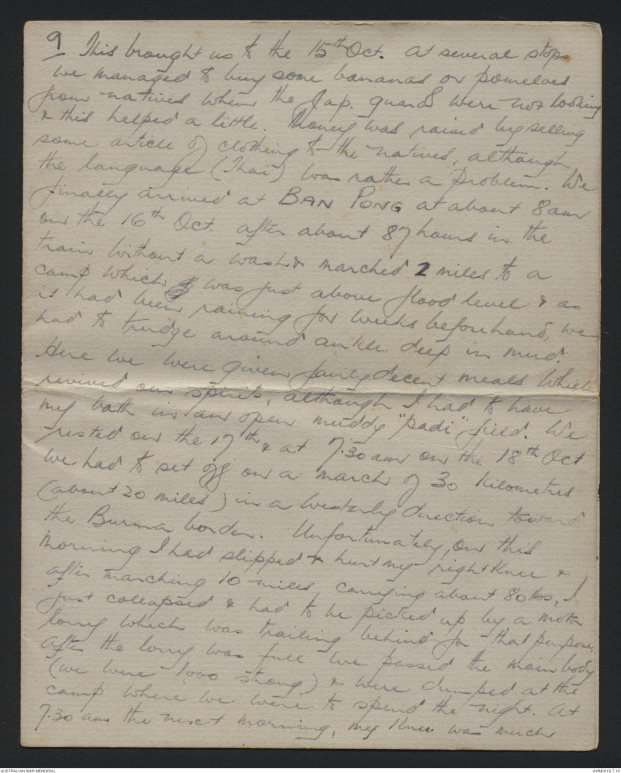 9 This brought us to the 15th Oct. At several stops
we managed to buy some bananas or pomeloes
from natives when the Jap. guards were not looking
& this helped a little. Money was raised by selling
some article of clothing to the natives, although,
the language (Thai) was rather a problem. We
finally arrived at BAN PONG at about 8am
on the 16th Oct. after about 87 hours in the
train without a wash & marched 2 miles to a
camp which was just above flood level & as
it had been raining for weeks beforehand, we
had to trudge around ankle deep in mud.
Here we were given fairly decent meals which
revived our spirits, although I had to have
my bath in an open muddy "padi" field. We
rested on the 17th & at 7.30 am on the 18th Oct
we had to set off on a march of 30 kilometres
(about 20 miles) in a westerly direction toward
the Burma border. Unfortunately, on this
morning I had slipped & hurt my right knee &
after marching 10 miles carrying about 80 lbs, I
just collapsed & had to be picked up by a motor
lorry which was trailing behind for that purpose.
After the lorry was full we passed the main body
(we were 1,000 strong) & were dumped at the
camp where we were to spend the night. At
7.30 am the next morning, my knee was much
AUSTRALIAN WAR MEMORIAL
AWM2019.7.15